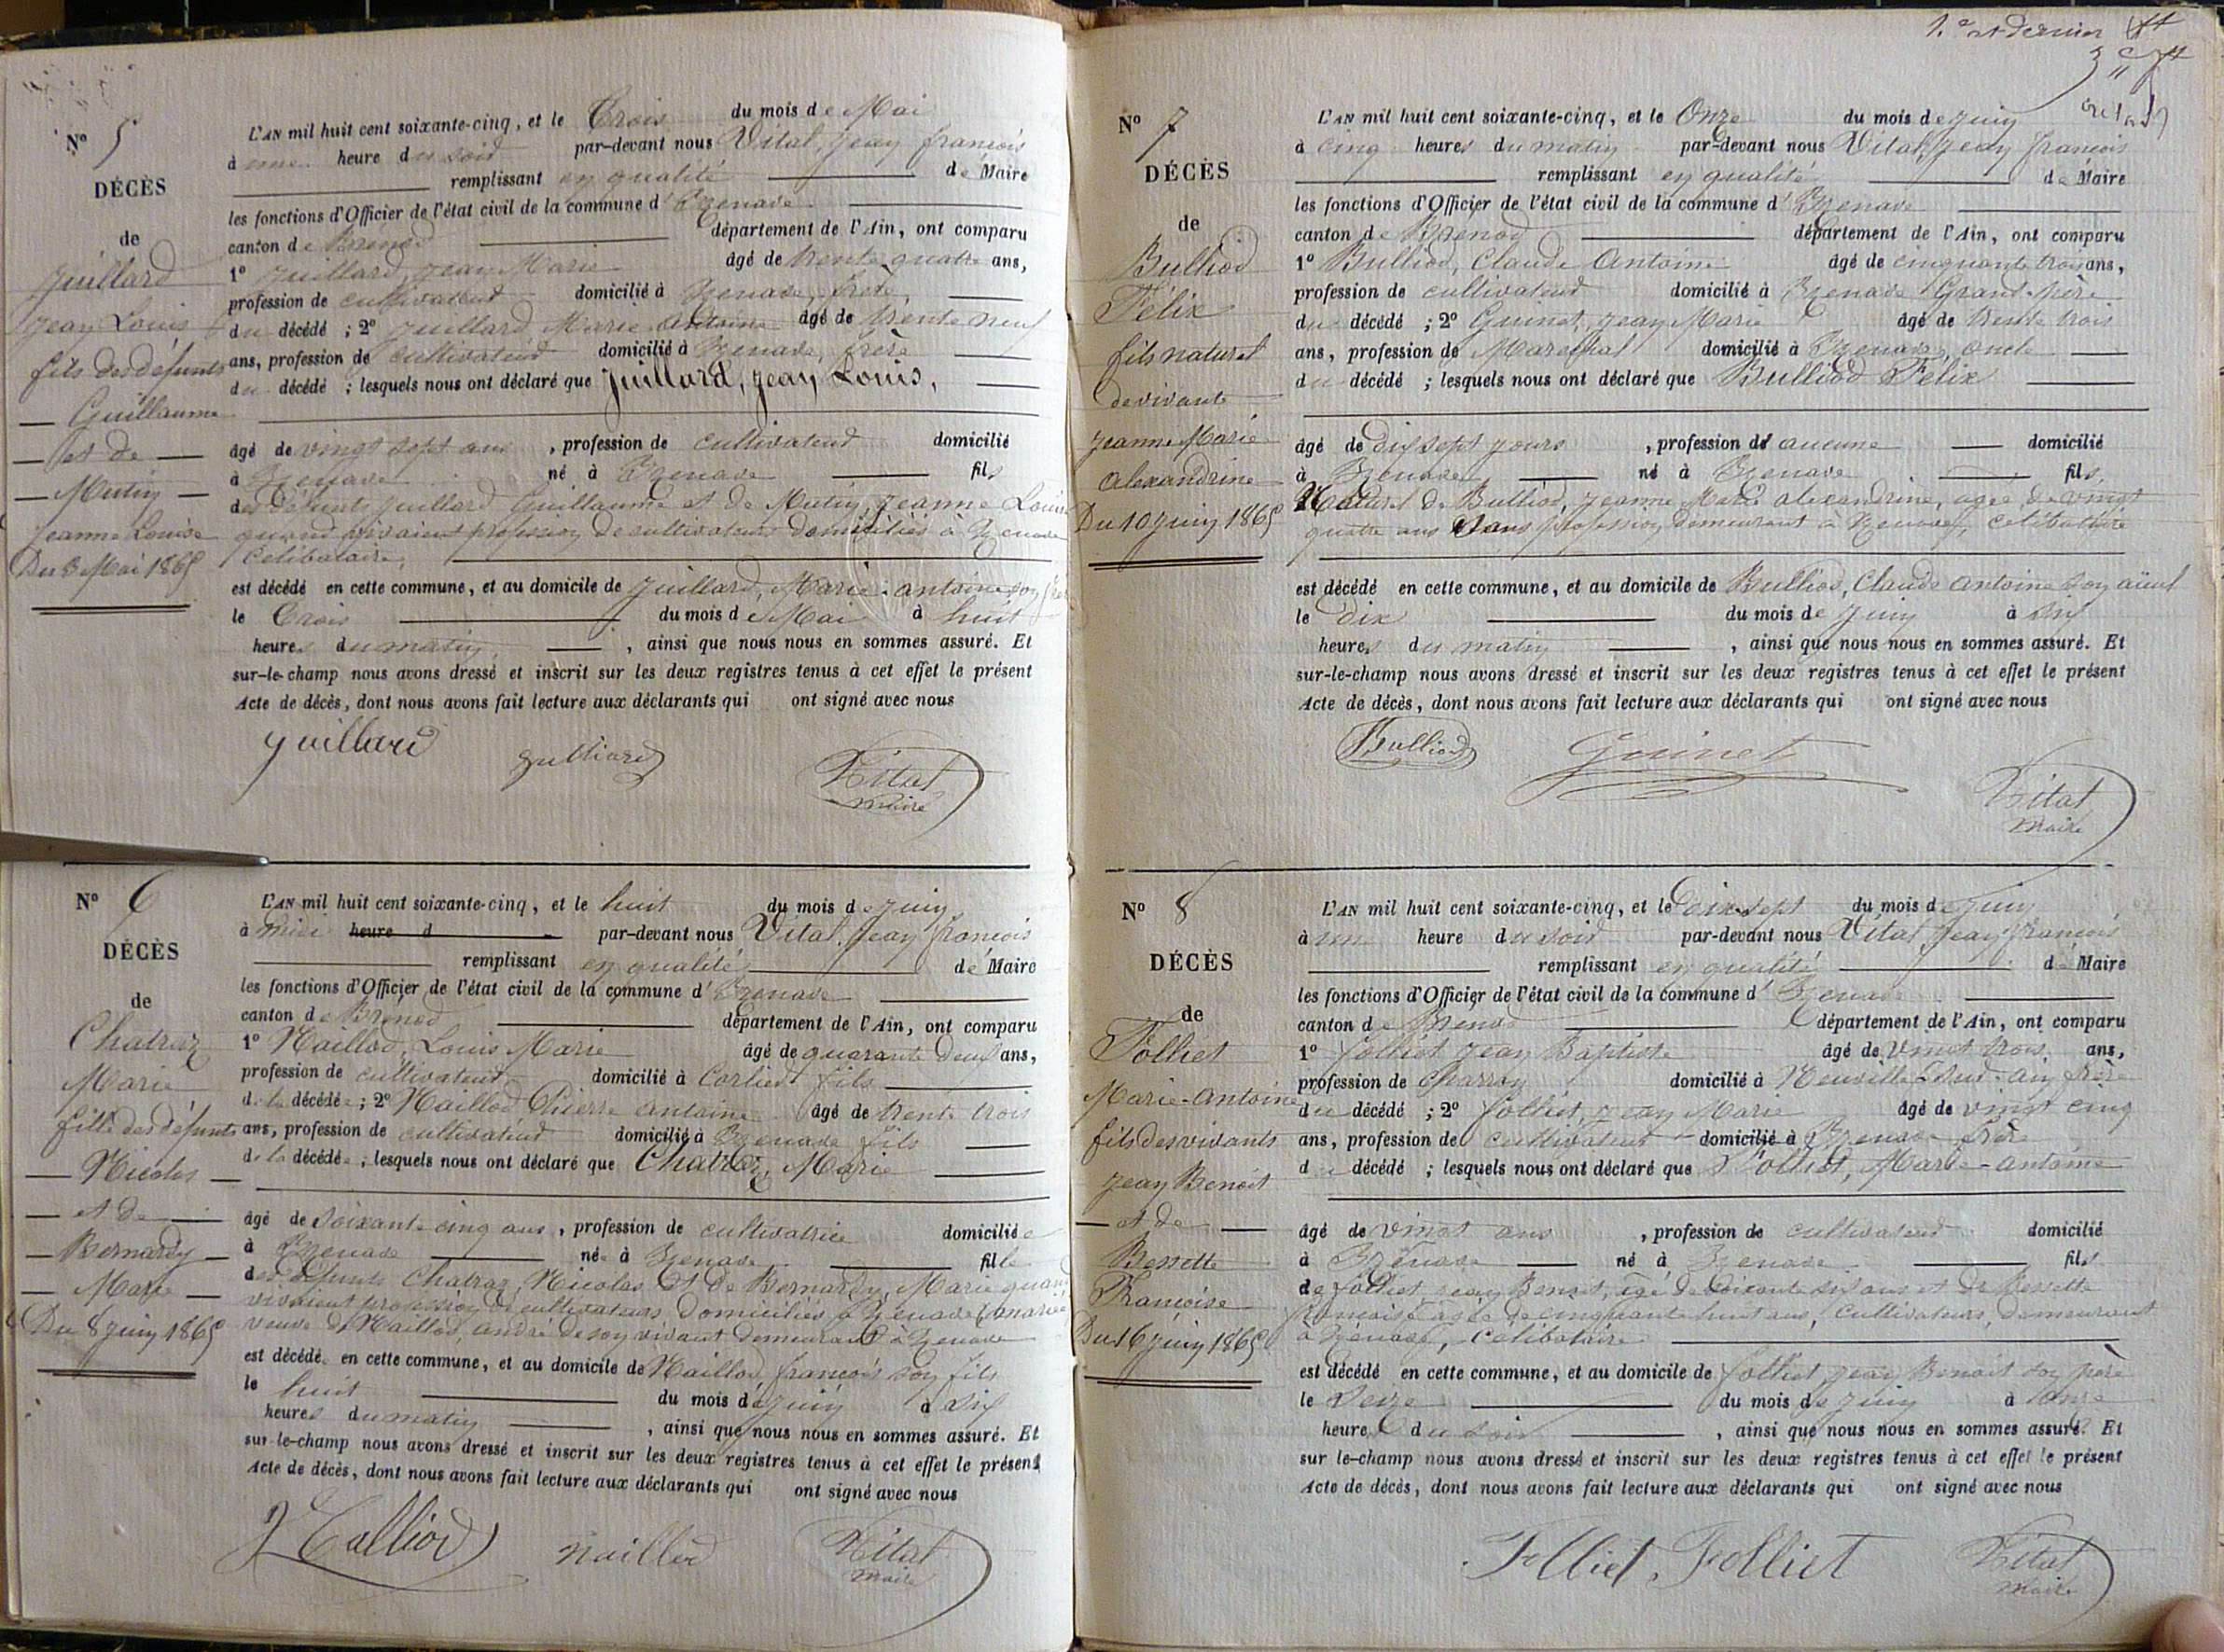 N° 5
DÉCÈS
de
Juillard
Jean Louis
fils des défunts
Guillaume
et de
Mutin
Jeanne Louise
Du 3 Mai 1865
L'AN mil huit cent soixante-cinq, et le Trois du mois de Mai
à une heure du soir par-devant nous Vital, Jean françois
remplissant en qualité de Maire
les fonctions d'Officier de l'état civil de la commune d'Izenave
canton de Brénod département de l'Ain, ont comparu
1° Juillard, Jean Marie âgé de trente quatre ans,
profession de cultivateur domicilié à Izenave, frère,
du décédé ; 2° Juillard Marie Antoine âgé de trente neuf
ans, profession de cultivateur domicilié à Izenave, frère
du décédé ; lesquels nous ont déclaré que Juillard, Jean Louis,
âgé de vingt sept ans, profession de cultivateur domicilié
à Izenave né à Izenave fils
des défunts Juillard Guillaume et de Mutin, Jeanne Louise
quand vivaient profession de cultivateurs domiciliés à Izenave
Célibataire,
est décédé en cette commune, et au domicile de Juillard, Marie-antoine son frère
le Trois du mois de Mai à huit
heures du matin, ainsi que nous nous en sommes assuré. Et
sur-le-champ nous avons dressé et inscrit sur les deux registres tenus à cet effet le présent
Acte de décès, dont nous avons fait lecture aux déclarants qui ont signé avec nous
Juillard Vital
maire
N° 6
DÉCÈS
de
Chatraz
Marie
fille des défunts
Nicolas
et de
Bernardy
Marie
Du 8 Juin 1865
L'AN mil huit cent soixante-cinq, et le huit du mois de Juin
à midi heure d par-devant nous Vital, Jean françois
remplissant en qualité de Maire
les fonctions d'Officier de l'état civil de la commune d'Izenave
canton de Brénod département de l'Ain, ont comparu
1° Naillod, Louis Marie âgé de quarante deux ans,
profession de cultivateur domicilié à Corlier fils
de la décédée ; 2° Naillod Pierre antoine âgé de trente trois
ans, profession de cultivateur domicilié à Izenave fils
de la décédée ; lesquels nous ont déclaré que Chatraz, Marie
âgé de soixante cinq ans, profession de cultivatrice domiciliée
à Izenave née à Izenave fille
des défunts Chatraz, Nicolas et de Bernardy, Marie quand
vivaient profession de cultivateurs domiciliés à Izenave
veuve de Naillod, andré de son vivant demeurant à Izenave
est décédée en cette commune, et au domicile de Naillod françois son fils
le huit du mois de juin à six
heures du matin, ainsi que nous nous en sommes assuré. Et
sur-le-champ nous avons dressé et inscrit sur les deux registres tenus à cet effet le présent
Acte de décès, dont nous avons fait lecture aux déclarants qui ont signé avec nous
naillod Vital
maire
1er et dernier
N° 7
DÉCÈS
de
Bulliod
Félix
fils naturel
de vivante
Jeanne Marie
Alexandrine
Du 10 Juin 1865
L'AN mil huit cent soixante-cinq, et le Onze du mois de Juin
à cinq heures du matin par-devant nous Vital, Jean françois
remplissant en qualité de Maire
les fonctions d'Officier de l'état civil de la commune d'Izenave
canton de Brénod département de l'Ain, ont comparu
1° Bulliod, Claude Antoine âgé de cinquante trois ans,
profession de cultivateur domicilié à Izenave Grand-père
du décédé ; 2° Guinet, Jean Marie âgé de trente trois
ans, profession de Maréchal domicilié à Izenave, oncle
du décédé ; lesquels nous ont déclaré que Bulliod Félix
âgé de dix sept jours, profession d'aucune domicilié
à Izenave né à Izenave fils,
Naturel de Bulliod, Jeanne Marie alexandrine, agée de vingt
quatre ans sans profession demeurant à Izenave, célibataire
est décédé en cette commune, et au domicile de Bulliod, Claude Antoine son aïeul
le dix du mois de Juin à six
heures du matin, ainsi que nous nous en sommes assuré. Et
sur-le-champ nous avons dressé et inscrit sur les deux registres tenus à cet effet le présent
Acte de décès, dont nous avons fait lecture aux déclarants qui ont signé avec nous
Bulliod Guinet Vital
maire
N° 8
DÉCÈS
de
Folliet
Marie-Antoine
fils des vivants
Jean Benoit
et de
Bessette
Françoise
Du 16 Juin 1865
L'AN mil huit cent soixante-cinq, et le Dix sept du mois de Juin
à une heure du soir par-devant nous Vital Jean françois
remplissant en qualité de Maire
les fonctions d'Officier de l'état civil de la commune d'Izenave
canton de Brénod département de l'Ain, ont comparu
1° folliet Jean Baptiste âgé de vingt trois ans,
profession de Charron domicilié à Neuville sur-ain frère
du décédé ; 2° folliet, Jean Marie âgé de vingt cinq
ans, profession de cultivateur domicilié à Izenave frère
du décédé ; lesquels nous ont déclaré que Folliet, Marie-antoine
âgé de vingt ans, profession de cultivateur domicilié
à Izenave né à Izenave fils
de folliet Jean Benoit, agé de soixante six ans et de Bessette
françoise agée de cinquante huit ans, cultivateurs, demeurant
à Izenave, célibataire
est décédé en cette commune, et au domicile de folliet Jean Benoit son père
le Seize du mois de Juin à onze
heures du soir, ainsi que nous nous en sommes assuré. Et
sur le-champ nous avons dressé et inscrit sur les deux registres tenus à cet effet le présent
Acte de décès, dont nous avons fait lecture aux déclarants qui ont signé avec nous
Folliet, Folliet Vital
maire